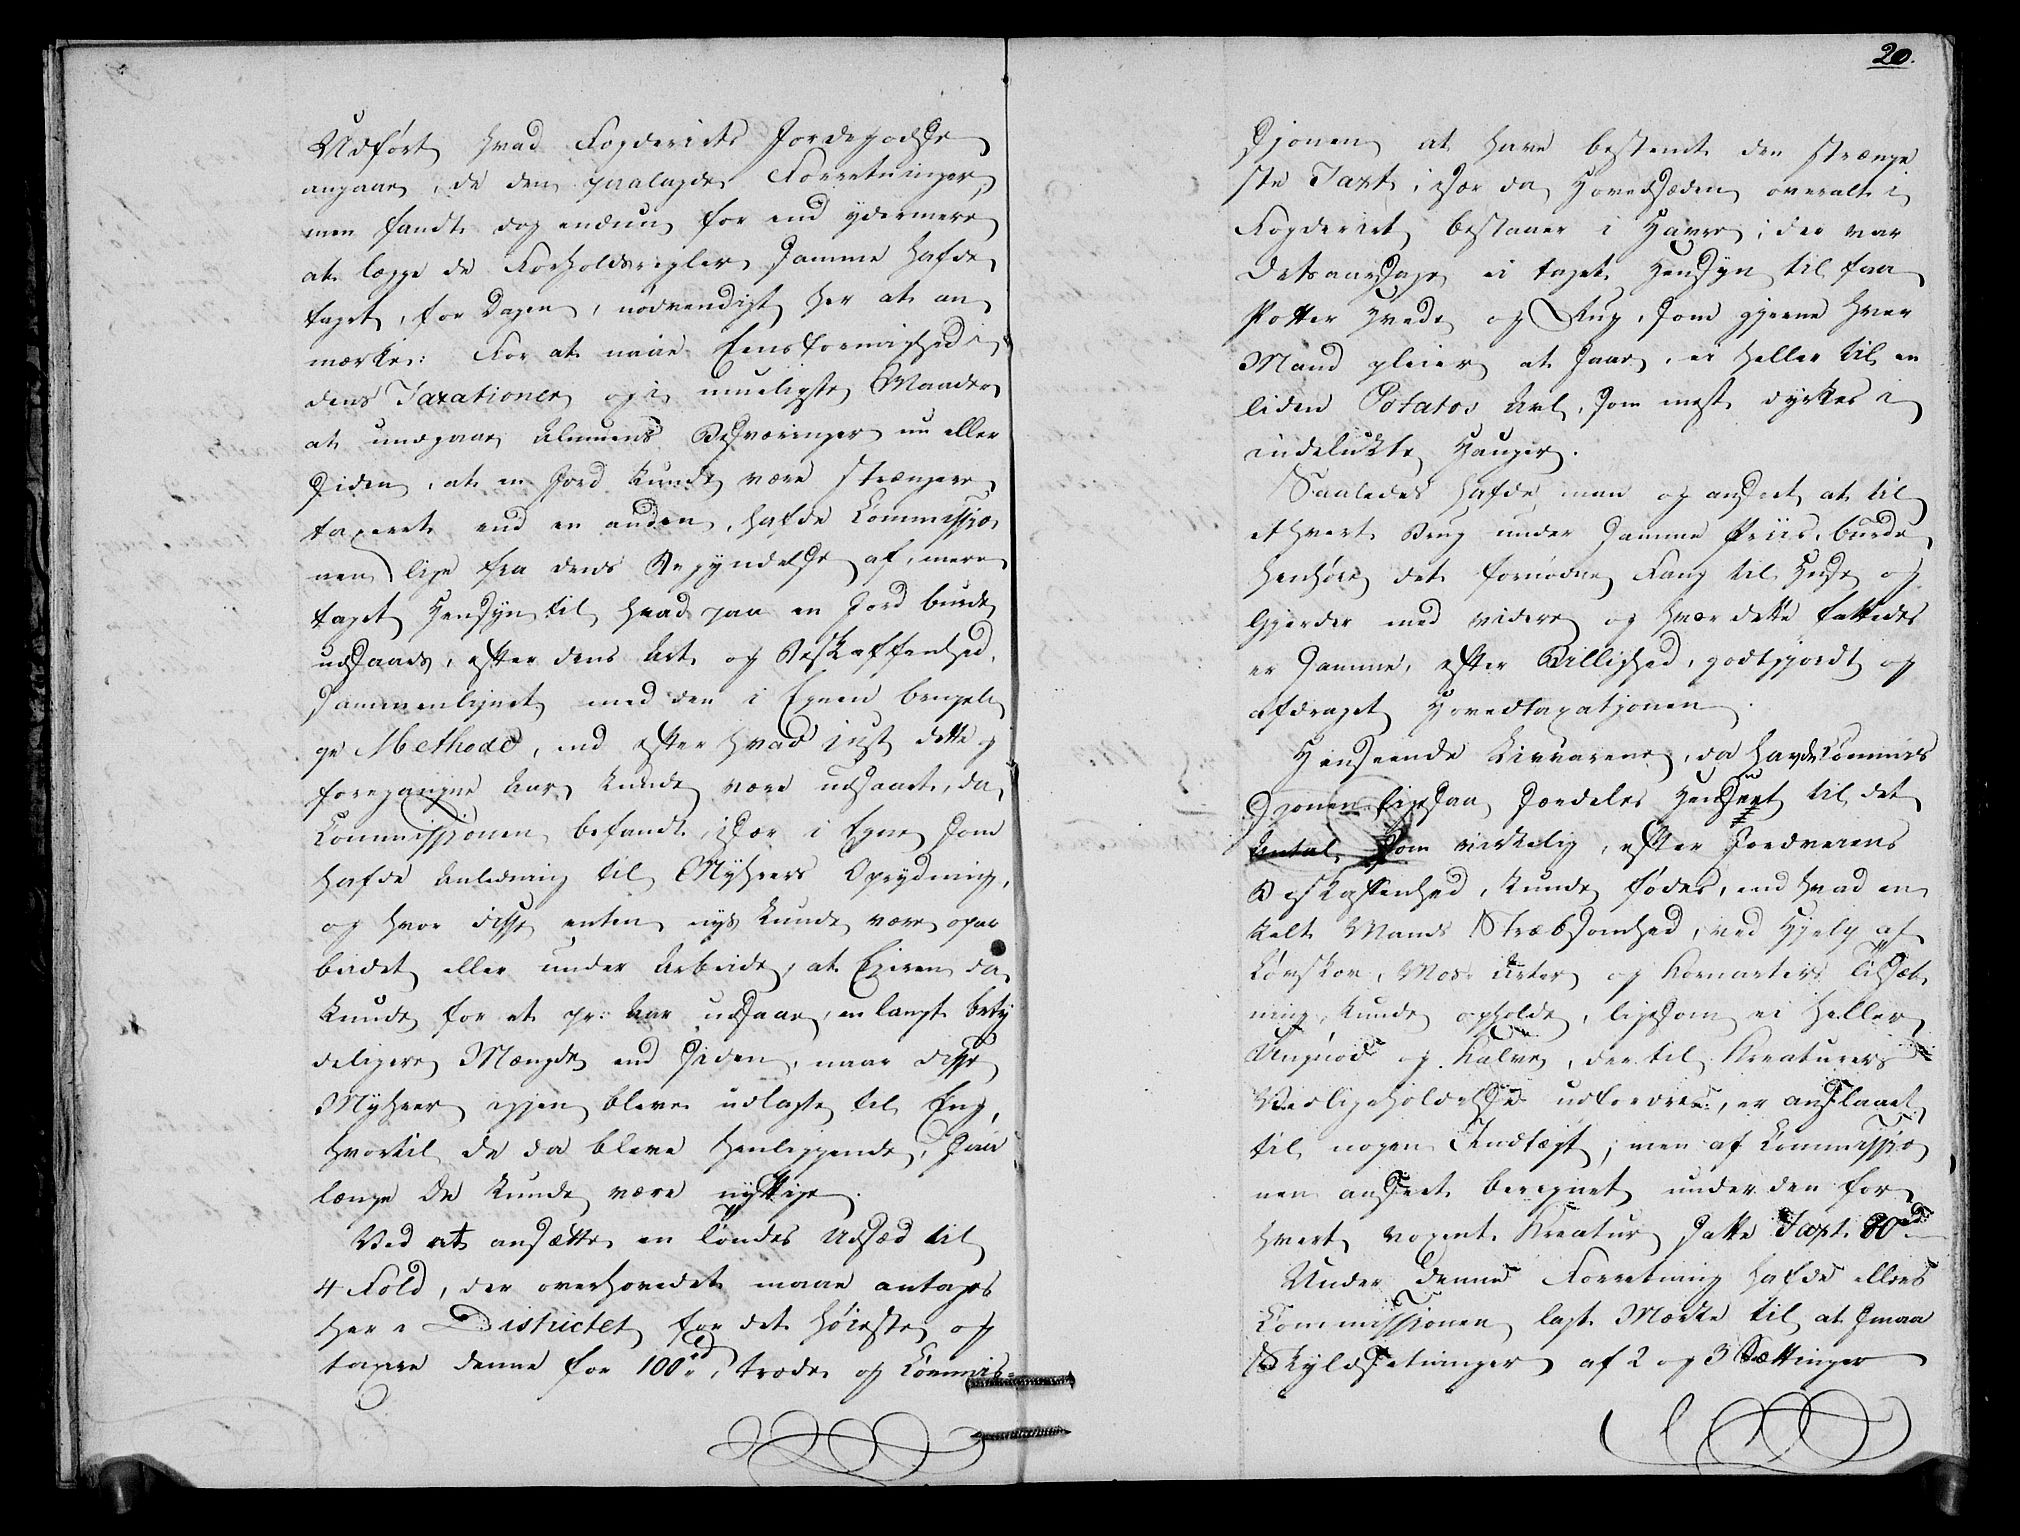 Udført hvad Fogderiets Jordegodse
angaaer, de dem paalagde Forretninger,
men fandt dog endnu for end ydermere
at lægge de Forholdsregler Samme hafde
taget, for Dagen, nødvendigt her at an
mærke: For at naae Eensformighed i
dens Taxationer og i mueligste Maader
at undgaae Almuens Besværinger nu eller
siden, at en Jord kunde være strængere
taxeret end en anden, hafde Commissio
nen lige fra dens Begyndelse af, mere
taget Hensyn til hvad paa en Jord burde
udsaaes, efter dens Art og Beskaffenhed,
sammenlignet med den i Egnen brugeli
ge Methode, end efter hvad just dette
foregangne Aar kunde være udsaaet, da
Commissionen befandt, især i Egne som
hafde Anledning til Myhrers Oprydning,
og hvor disse enten nys kunde være opar
beidet eller under Arbeide, at Eieren da
kunde for et pr: Aar udsaae en langt bety
deligere Mængde end siden, naar disse
Myhrer igjen bleve udlagte til Eng,
hvortil de da bleve henliggende, saa
længe de kunde være nyttige.
Ved at ansætte en Tøndes Udsæd til
4 Fold, der overhovedet maae antages
her i Districtet for det høieste og
taxere denne for 100 rd, troede og Commis=
20.
sjonen at have bestemt den strænge
ste Taxt, især da Hovedsæden overalt i
Fogderiet bestaaer i Havre; der var
Detsaarsage ei taget Hensyn til faa
Potter Hvede og Rug, som gjerne hver
Mand pleier at saae, ei heller til en
liden Potatos Avl, som mest dyrkes i
indelukte Hauger.
Saaledes hafde man og anseet at til
ethvert Brug under samme Priis, burde
henhøre det fornødne Fang til Huse og
Gjerder med videre og hvor dette fattedes
er samme, efter Billighed, godtgjordt og
afdraget Hovedtaxatjonen.
Henseende Creaturene, da havde Commis
sjonen ligesaa særdeles Henseet til det
Antal som virkelig, efter Jordveiens
Beskaffenhed, kunde fødes, end hvad en
kelt Mands Stræbsomhed, ved Hjelp af
Løvskov, Mos- arter og Kornarters Tilsæt
ning, kunde opholde, ligesom ei heller
Ungnød og Kalve, der til Kreaturers
Vedligeholdelse udfordres, er anslaaet
til nogen Indtægt, men af Commissio
nen anseet beregnet under den for
hvert voxent Kreatur satte Taxt 20 rd
Under denne Forretning hafde ellers
Commissjonen lagt Mærke til at smaa
Skyldsetninger af 2 og 3 Sættinger